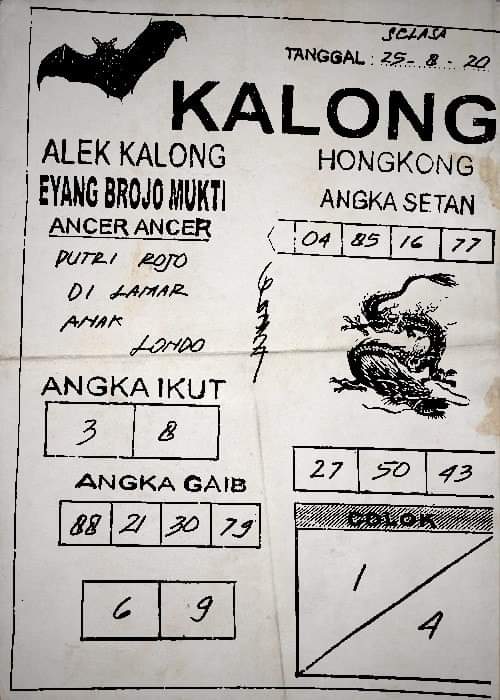 SELASA
TANGGAL : 25 - 8 - 20
KALONG
ALEK KALONG
EYANG BROJO MUKTI
ANCER ANCER
PUTRI ROJO
DI LAMAR
ANAK
LONDO
HONGKONG
ANGKA SETAN
04 85 16 77
ANGKA IKUT
3 8
ANGKA GAIB
88 21 30 79
6 9
27 50 43
COLOK
1
4